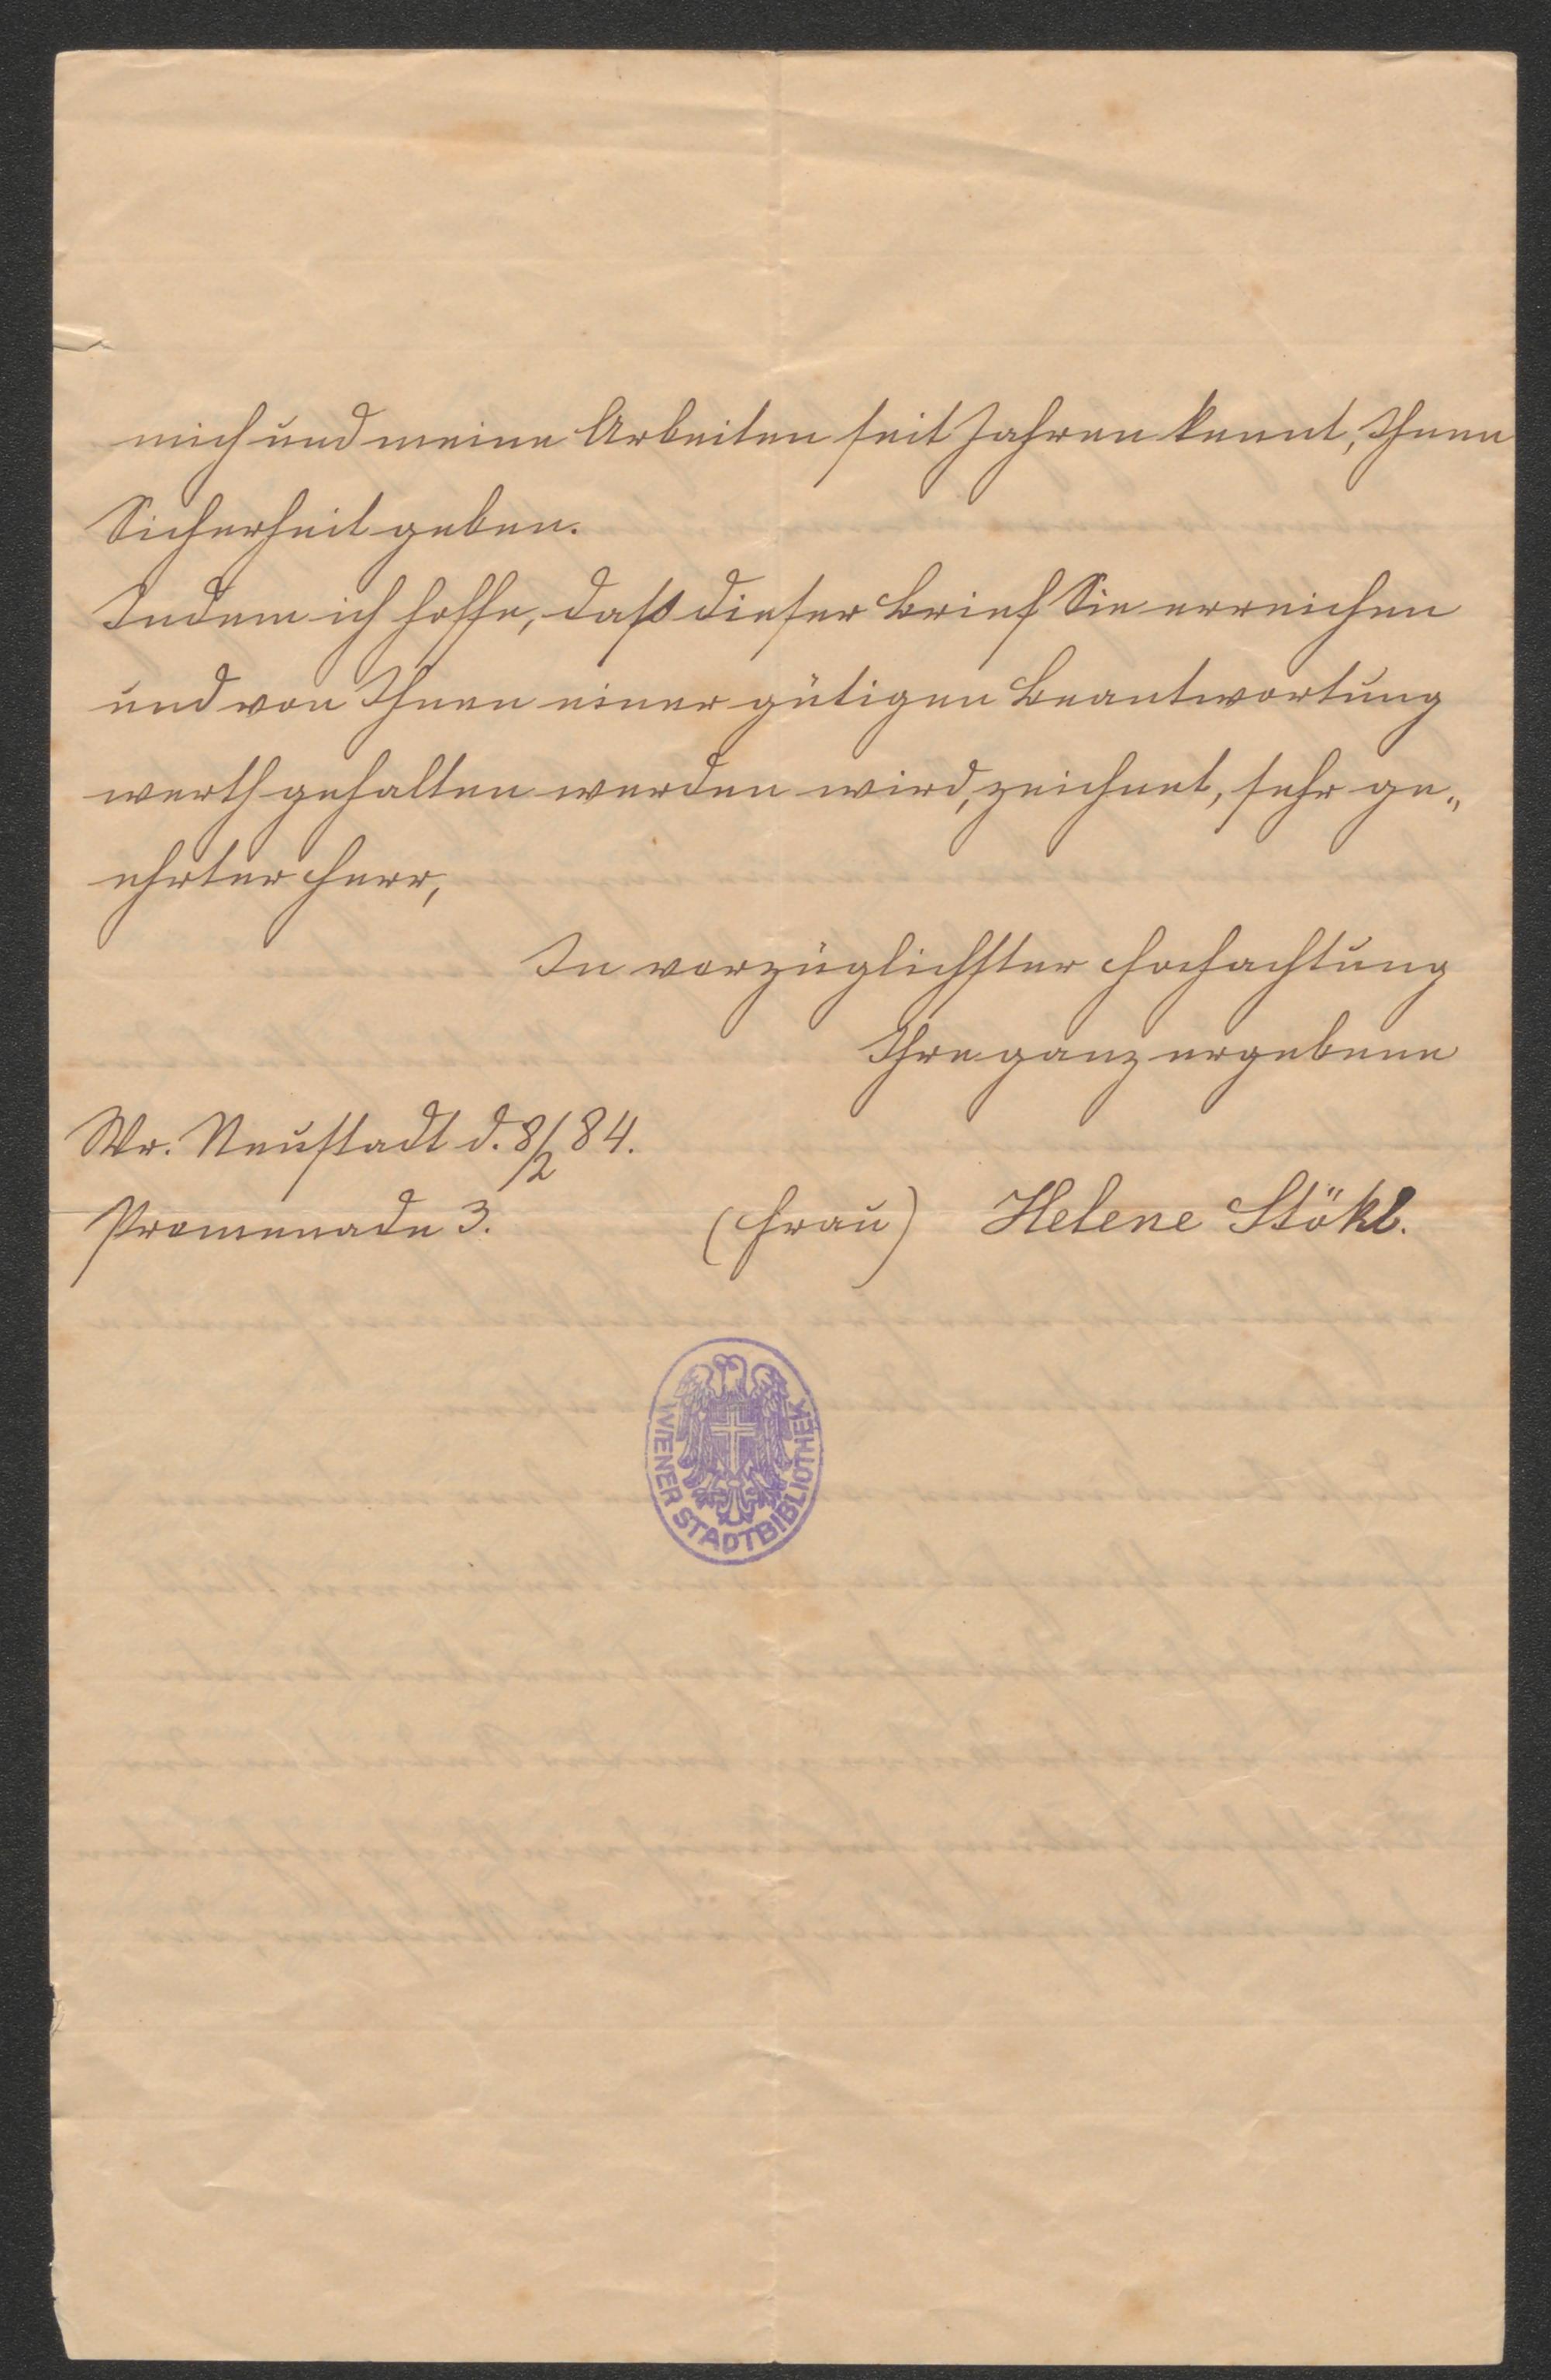 mich und meine Arbeiten seit Jahren kennt, Ihnen
Sicherheit geben.
Indem ich hoffe, daß dieser Brief Sie erreichen
und von Ihnen einer gütigen Beantwortung
werth gehalten werden wird, zeichnet, sehr ge„
ehrter Herr,
In vorzüglichster Hochachtung
Ihre ganz ergebene
Wr. Neustadt d. 8/2 84.
Promenade 3.
(Frau) Helene Stökl.
WIENER STADTBIBLIOTHEK